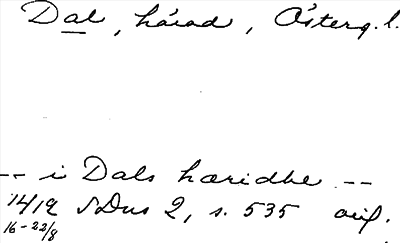 Dal, härad, Österg.l.
-- i Dals hæridhe --
1419 SDns 2, s. 535 orig.
16-22/8